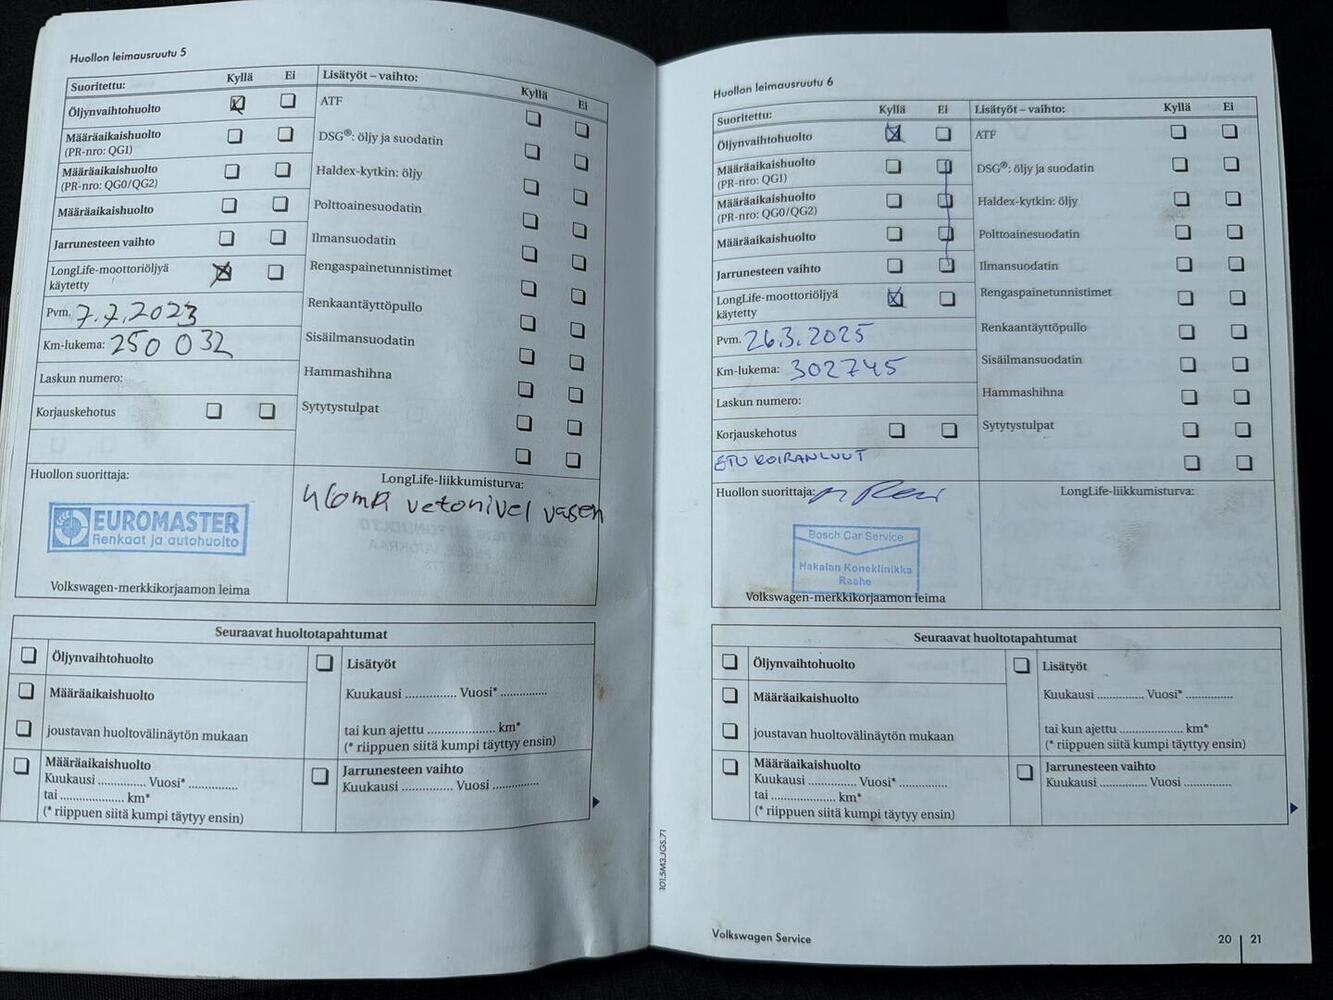 Huollon leimausruutu 5
Suoritettu: Kyllä Ei
Öljynvaihtohuolto
Määräaikaishuolto
(PR-nro: QG1)
Määräaikaishuolto
(PR-nro: QG0/QG2)
Määräaikaishuolto
Jarrunesteen vaihto
LongLife-moottoriöljyä
käytetty
Pvm. 7.7.2023
Km-lukema: 250 032
Laskun numero:
Korjauskehotus
Huollon suorittaja:
EUROMASTER
Renkaat ja autohuolto
Volkswagen-merkkikorjaamon leima
Lisätyöt – vaihto: Kyllä Ei
ATF
DSG®: öljy ja suodatin
Haldex-kytkin: öljy
Polttoainesuodatin
Ilmansuodatin
Rengaspainetunnistimet
Renkaantäyttöpullo
Sisäilmansuodatin
Hammashihna
Sytytystulpat
LongLife-liikkumisturva:
vetonivel vasen
Seuraavat huoltotapahtumat
Öljynvaihtohuolto
Määräaikaishuolto
joustavan huoltovälinäytön mukaan
Määräaikaishuolto
Kuukausi .............. Vuosi* ..............
tai .................. km*
(* riippuen siitä kumpi täytyy ensin)
Lisätyöt
Kuukausi .............. Vuosi* ..............
tai kun ajettu .................... km*
(* riippuen siitä kumpi täyttyy ensin)
Jarrunesteen vaihto
Kuukausi .............. Vuosi ..............
101.5M3.JGS.71
Huollon leimausruutu 6
Suoritettu: Kyllä Ei
Öljynvaihtohuolto
Määräaikaishuolto
(PR-nro: QG1)
Määräaikaishuolto
(PR-nro: QG0/QG2)
Määräaikaishuolto
Jarrunesteen vaihto
LongLife-moottoriöljyä
käytetty
Pvm. 26.3.2025
Km-lukema: 302745
Laskun numero:
Korjauskehotus
ETU KOIRANLUUT
Huollon suorittaja:
Bosch Car Service
Hakalan Koneklinikka
Raahe
Volkswagen-merkkikorjaamon leima
Lisätyöt – vaihto: Kyllä Ei
ATF
DSG®: öljy ja suodatin
Haldex-kytkin: öljy
Polttoainesuodatin
Ilmansuodatin
Rengaspainetunnistimet
Renkaantäyttöpullo
Sisäilmansuodatin
Hammashihna
Sytytystulpat
LongLife-liikkumisturva:
Seuraavat huoltotapahtumat
Öljynvaihtohuolto
Määräaikaishuolto
joustavan huoltovälinäytön mukaan
Määräaikaishuolto
Kuukausi .............. Vuosi* ..............
tai .................. km*
(* riippuen siitä kumpi täytyy ensin)
Lisätyöt
Kuukausi .............. Vuosi* ..............
tai kun ajettu .................... km*
(* riippuen siitä kumpi täyttyy ensin)
Jarrunesteen vaihto
Kuukausi .............. Vuosi ..............
Volkswagen Service
20 21